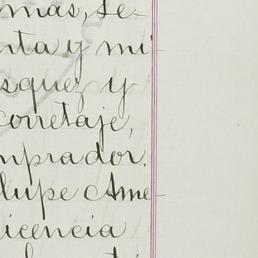 mas, se-
nta y mi-
squez y
corretaje,
mprador.
lupe Ame-
licencia